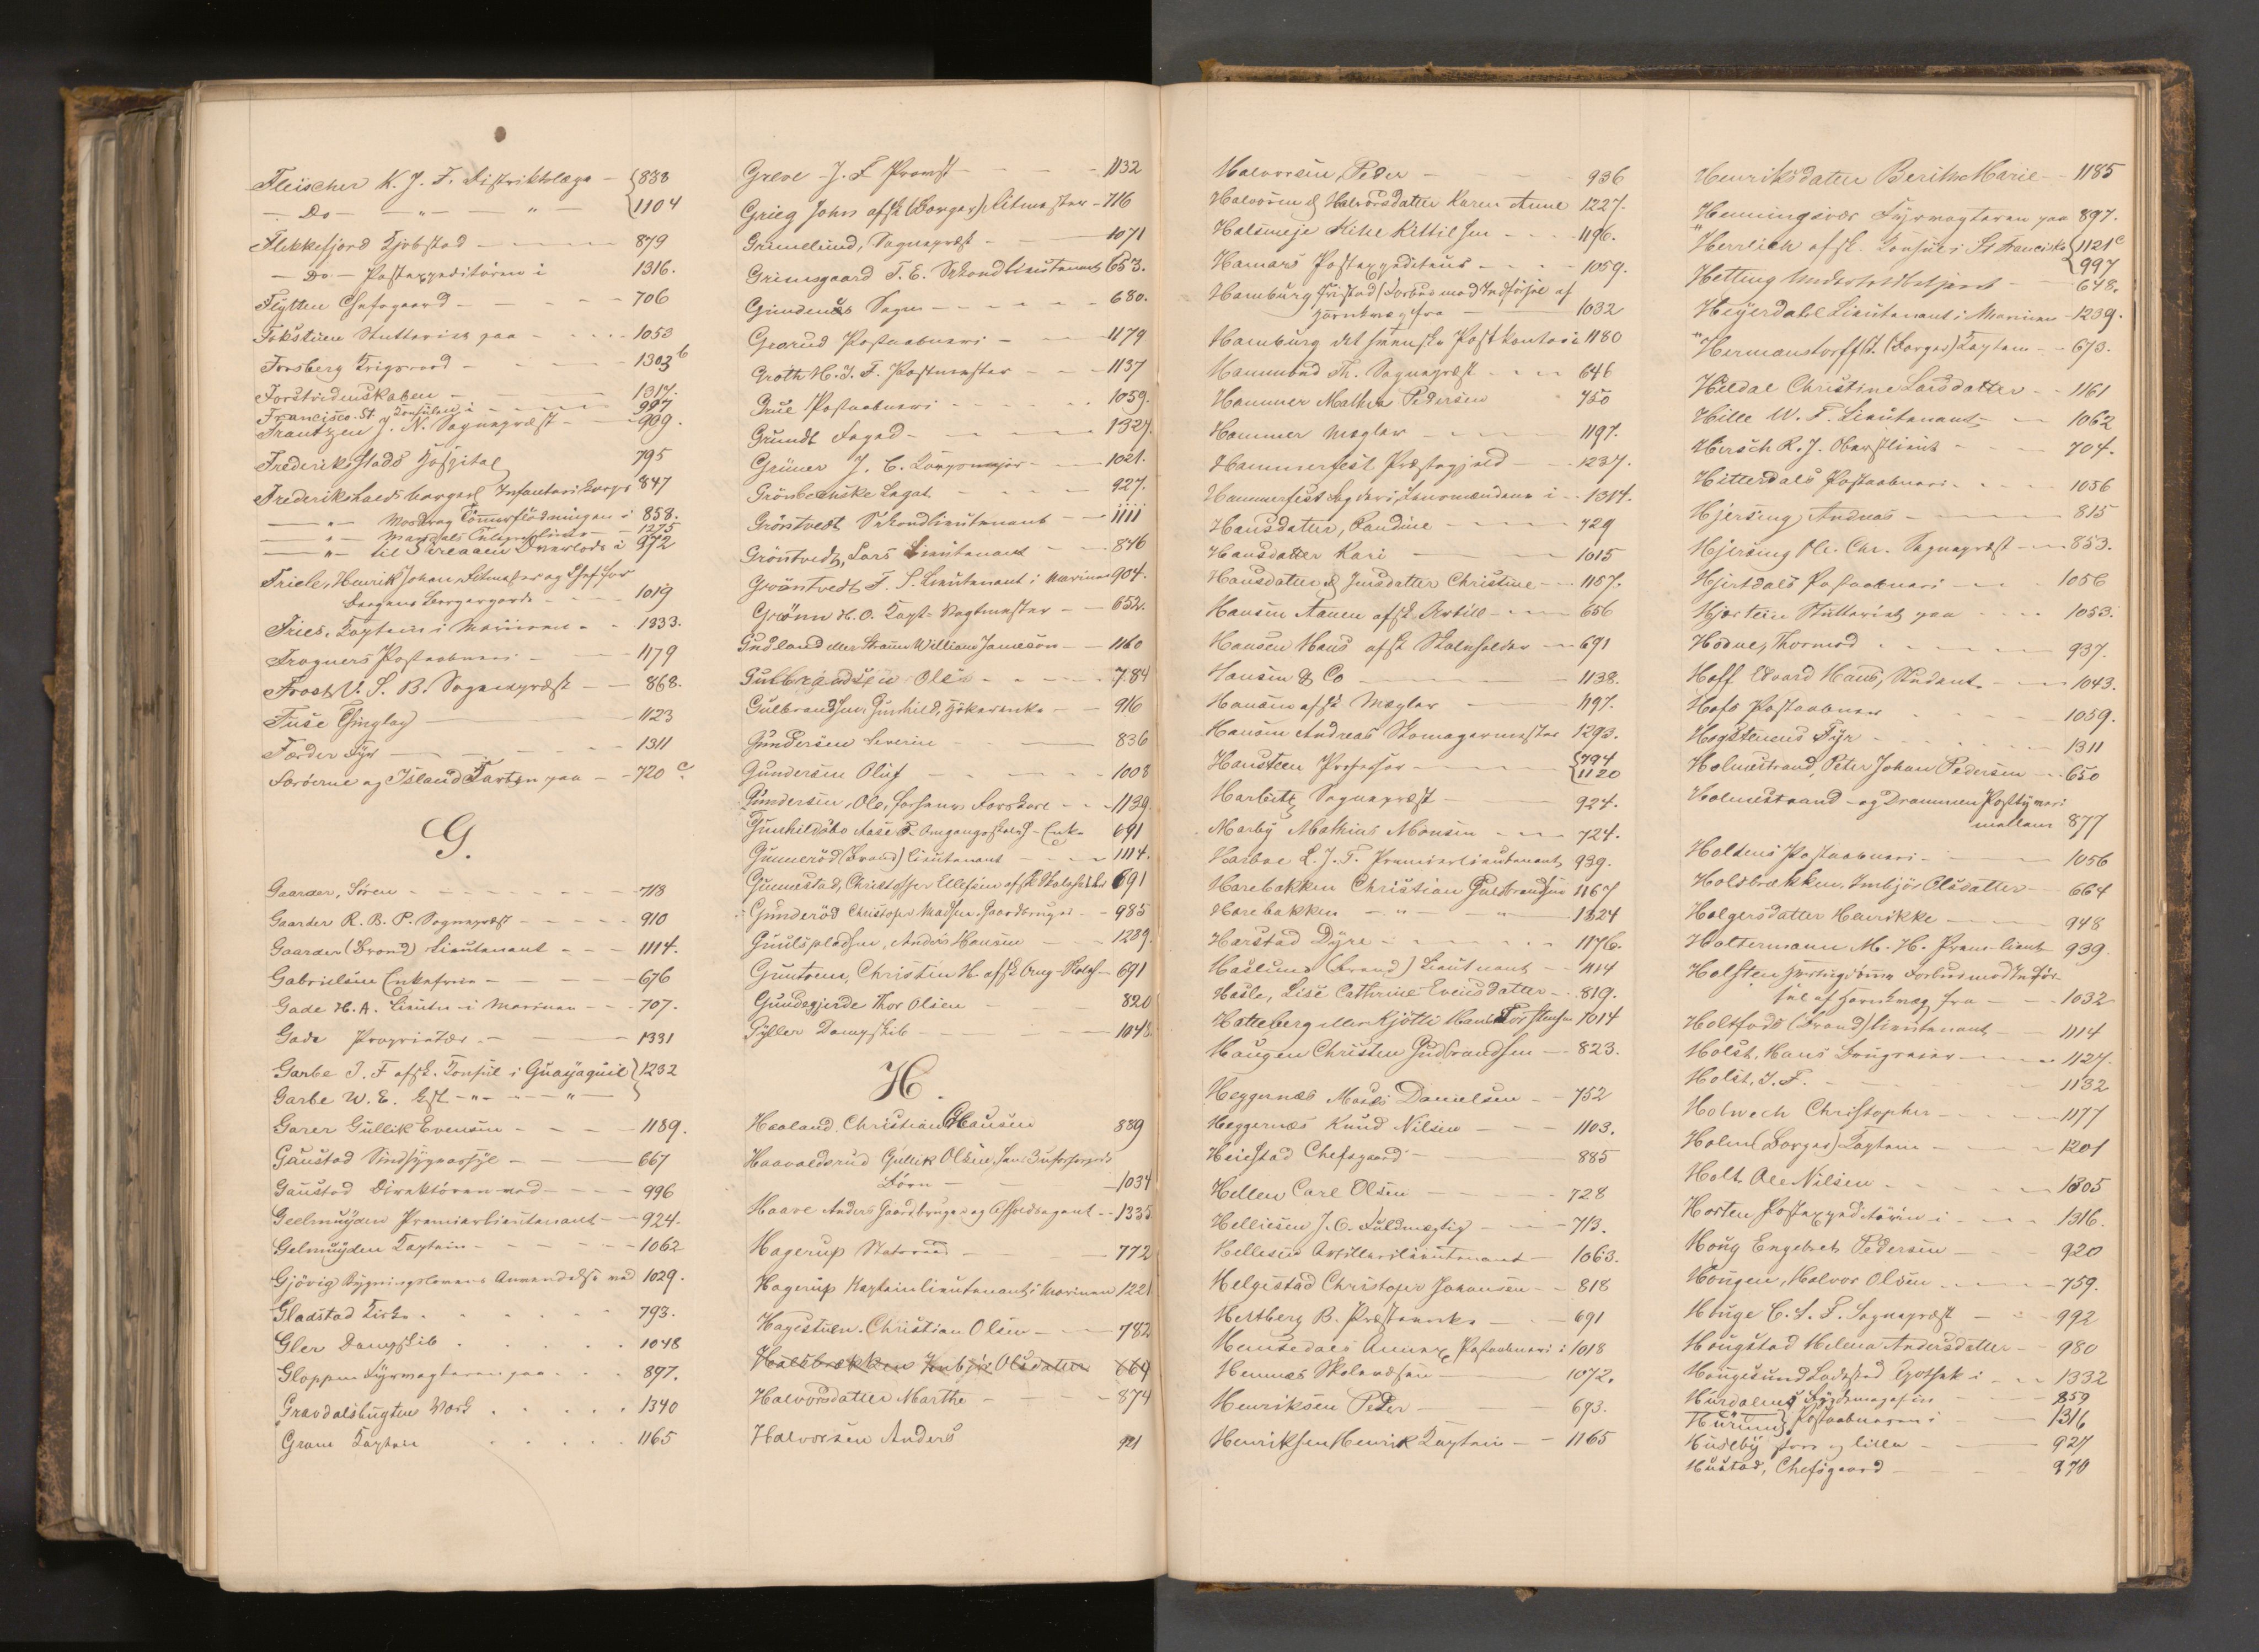 Fleischer K. J. F. Distriktslæge - {838
- Do - - " - - " - {1104
Flekkefjord Kjøbstad - - - 879
- Do - Postexpeditøren i 1316.
Flytten Chefsgaard - - - 706
Fokstuen Stutteriet paa - - - 1053
Forsberg Krigsraad - - - 1303 b
Forstvidenskaben - - - 1317.
Francisco St. Konsulen i - - - 997
Frantzen J. N. Sognepræst - - 909.
Frederikstads Hospital 795
Fredrikshalds borgerl Infanterikorps 847
- " - Mosdrag Tømmerflødningen i 858.
- " - 1275
- " - til Svireaaen i 972
Friele, Henrik Johan, Ritmester og Chef for
Bergens Borgergarde - - - 1019
Fries, Kaptein i Marinen - - 1333.
Frogners Postaabneri - - - 1179
Frost V. S. B. Sognepræst - - 868.
Fuse Thinglag - - - 1123
Færder Fyr - - - 1311
Færøerne og Island Farten paa - - 720 c.
G.
Gaarder, Søren - - - 713
Gaarder R. B. P. Sognepræst - - - 910
Gaarder (Brand) Lieutenant - - - 1114.
Gabrielsen Enkefrue - - - 676
Gade H. A. Lieutn i Marinen - - 707.
Gade Proprietær - - - 1331
Garbe J. F. afsk. Konsul i Guayaquil } 1232
Garbe W. E. Gst - " - - " - }
Garer Gullik Evensen - - - 1189.
Gaustad Sindsygeasyl - - - 667
Gaustad Direktøren ved - - - 996
Geelmuyden Premierlieutenant - - 924.
Gelmuyden Kaptein - - - 1062
Gjøvig Bygningslovens Anvendelse ved 1029.
Gladstad Kirke - - - 793.
Gler Dampskib - - - 1048
Gloppen Fyrvogteren paa - - - 897.
Gravdalsbugten Værk - - - 1340
Gram Kaptein - - - 1165
Greve J. F. Provst - - - 1132
Grieg John afsk (Borger) Ritmester - 716
Grimelund, Sognepræst - - - 1071
Grimsgaard T. E. Sekondlieutenant 653.
Grindens Sogn - - - 680.
Grorud Postaabneri - - - 1179
Groth H. J. F. Postmester - - - 1137
Grue Postaabneri - - - 1059.
Grundt Foged - - - 1327.
Grüner J. C. Korpsmajor - - - 1021.
Grønbechske Legat - - - 927.
Grøntvedt Sekondlieutenant - - - 1111
Grøntvedt, Lars Lieutenant - - - 846
Grøntvedt F. S. Lieutenant i Marinen 904.
Grønn H. O. Kapt- Vagtmester - - 652.
Gudland eller Straum William Jameson - - 1160
Gulbrandsen Ole - - - 784
Gulbrandsen Gunhild, Hökerenke - - 916
Gundersen Severin - - - 836
Gundersen Oluf - - - 1008
Gundersen, Ole, Forskare - - - 1139
Gunhildsbo Aase P. Omgangsskoleh - Enke 691
Gunnerød (Brand) Lieutenant - - - 1114.
Gunnestad, Christoffer Ellefsen afsk Skoleholder 691
Gunderød Christofer Madsen Gaardbruger - - 985
Guulspladsen, Anders Hansen - - 1289.
Guntveen, Christen H. afsk Omg-Skoleh - 691
Gundegjerde Thor Olsen - 820
Gyller Dampskib - - - 1048.
H.
Haaland Christian Hansen 889
Haavaldsrud Gullik Olsen
Børn - - - 1034
Haave Anders Gaardbruger og Ofoldsagent - - 1335
Hagerup Statsraad - - - 772
Hagerup Kapteinlieutenant i Marinen 1221
Hagestuen Christian Olsen - - - 782
Holsbrækken Imbjør Olsdatter 664
Halvorsdatter Marthe - - - 874
Halvorsen Anders 921
Halvorsen, Peder - - - 936
Halvorsen & Halvorsdatter Karen Anne 1227.
Halsmeje Kittel Kittilsen - - - 1196.
Hamars Postexpeditions - - - 1059.
Hamburg Fristad (Forbud mod Indførsel af
Hornkvæg fra - 1032
Hamburg det svenske Postkontor i 1180
Hammond Th. Sognepræst - - - 646
Hammer Mathea Pedersen 750
Hammer Mægler - - - 1197.
Hammerfest Præstegjeld - - 1237.
Hammerfest Fogderi, Lensmændene i - - 1314.
Hansdatter, Pauline - - - 729
Hansdatter Kari - - - 1015
Hansdatter & Jensdatter Christine - - - 1157.
Hansen Aanen afsk Artill - - - 656
Hansen Hans afsk Skoleholder - - 691
Hansen & Co - - - 1138.
Hansen afsk Mægler - - - 1197.
Hansen Andreas Skomagermester 1293.
Hansteen Professor - - - {794
{1120
Harbitz Sognepræst - - - 924.
Harby Mathias Monsen - - - 724.
Harboe L. J. T. Premierlieutenant 939.
Harebakken Christian Gulbrandsen 1167
Harebakken - " - " - 1324
Harstad Dyre - - - 1176.
Haslum (Brand) Lieutnant - - 1114
Hasle, Lise Cathrine Evensdatter - - 819.
Hatleberg eller Kjøtli Hans Torstensen 1014
Haugen Christen Gudbrandsen - - 823.
Heggernæs Mons Danielsen - - 752
Heggernæs Knud Nilsen - - - 1103.
Heiestad Chefsgaard - - - 885
Hellen Carl Olsen - - - 728
Helliesen J. C. Fuldmægtig - - - 713.
Hellesen Artillerilieutenant - 1063.
Helgestad Christofer Johansen - - 818
Hertberg B. Præsteenke - - - 691
Hemsedals Annex, Postaabneri i 1018
Hemnæs Skolevæsen - - - 1072.
Henriksen Peder - - - 693.
Henriksen Henrik Kaptein - - 1165
Henriksdatter Berthe Marie - - 1185
Henningsvær Fyrvogteren paa 897.
" Herrlich afsk. Konsul i St Francisko {1121 c
{997
Hetting - - 648.
Heyerdahl Lieutenant i Marinen - 1239.
" Hermanstorff A. (Borger) Kaptein - - 673.
Hildal Christine Larsdatter - - 1161
Hille W. F. Lieutenant - - 1062
Hirsch R. J. Oberstlieut - - - 704.
Hitterdals Postaabneri - - - 1056
Hjersing Andreas - - - 815
Hjersing Ole. Chr. Sognepræst - - 853.
Hjertdals Postaabneri - - - 1056
Hjerkin Stutteriet paa - - - 1053.
Hodne, Thormod - - - 937.
Hoff Edvard Hans, Student - - - 1043.
Hofs Postaabneri - - - 1059.
Hogstenens Fyr - - - 1311
Holmestrand, Peter Johan Pedersen - - 650
Holmestrand - og Drammen Postbyrer i
mellem 877
Holtens Postaabneri - - - 1056
Holsbrækken, Imbjør Olsdatter - 664
Holgersdatter Henrikke - - - 948
Holtermann M. H. Prem-lieut 939.
Holsten Hertugdømme Forbud mod Indfør-
sel af Hornkvæg fra - - - 1032
Holtfodt (Brand) Lieutenant - - 1114
Holst, Hans - - - 1127.
Holst, J. F. - - - 1132
Holwech Christopher - - - 1177
Holm (Borger) Kaptein - - - 1201
Holt Ole Nilsen - - - 1305
Horten Postexpeditøren i - - - 1316.
Houg Engebret Pedersen - 920
Hougen, Halvor Olsen - - - 759.
Houge C. S. S. Sognepræst - - 992
Hougstad Helene Andersdatter - - 980
Hougesund Ladested Apothek i - - - 1332
Hurdalens Bygdemagasin - - 859
Hurum, Postaabneren i - - - 1316
Huseby store og lille - - - 927
Hustad, Chefsgaard - - - 970